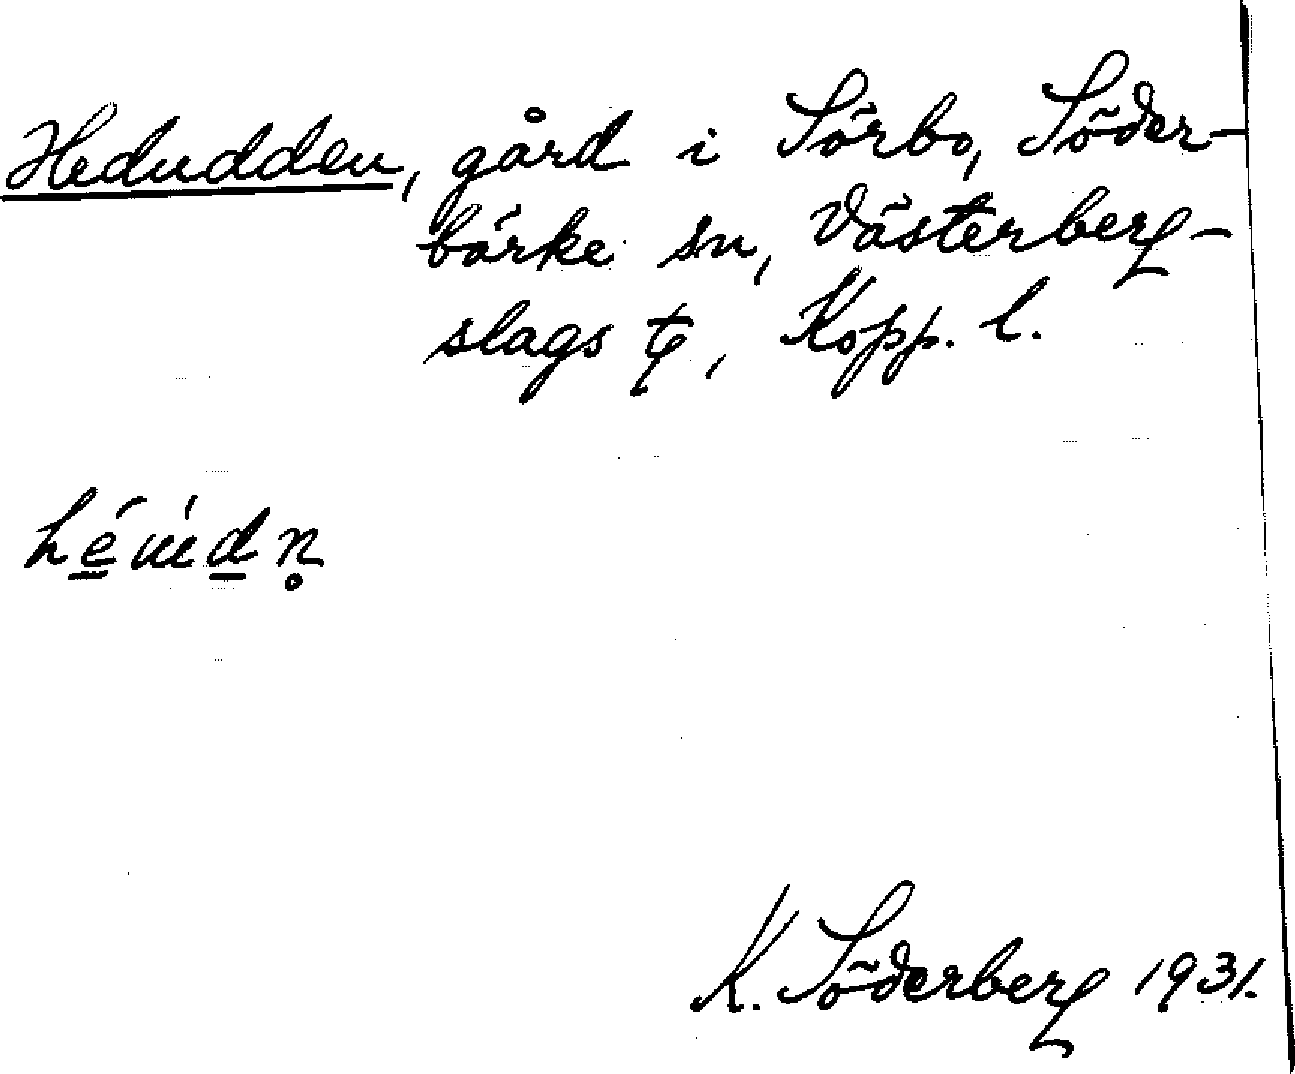 Hedudden, gård i Sörbo, Söder-
bärke sn, Västerberg-
slags tg, Kopp. l.
K. Söderberg 1931.